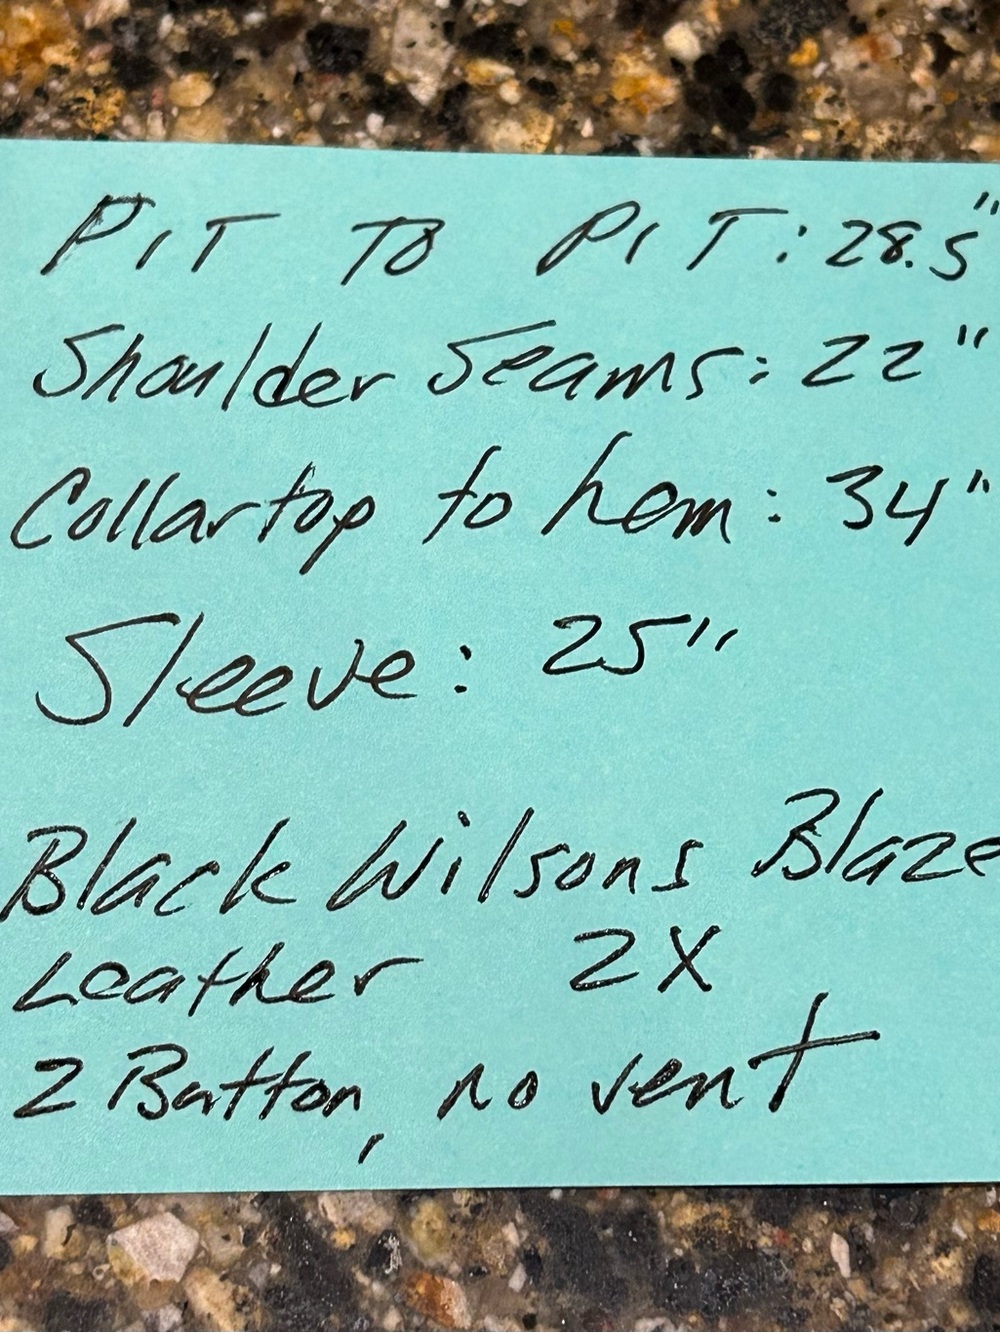 PIT TO PIT: 28.5"
Shoulder Seams: 22"
Collartop to hem: 34"
Sleeve: 25"
Black Wilsons Blaze
Leather 2X
2 Button, no vent